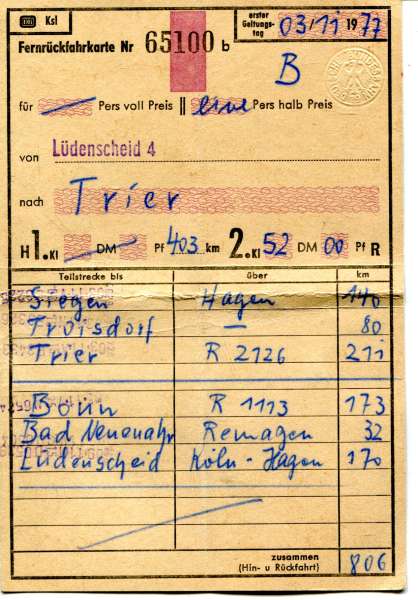 DB Ksl
erster Geltungstag 03/11 1977
Fernrückfahrkarte Nr 65100 b
B
für Pers voll Preis || eine Pers halb Preis
von Lüdenscheid 4
nach Trier
H 1.Kl DM Pf 403 km 2.Kl 52 DM 00 Pf R
Teilstrecke bis über km
Siegen Hagen 140
Troisdorf — 80
Trier R 2126 211
Bonn R 1113 173
Bad Neuenahr Remagen 32
Lüdenscheid Köln - Hagen 170
zusammen
(Hin- u Rückfahrt) 806